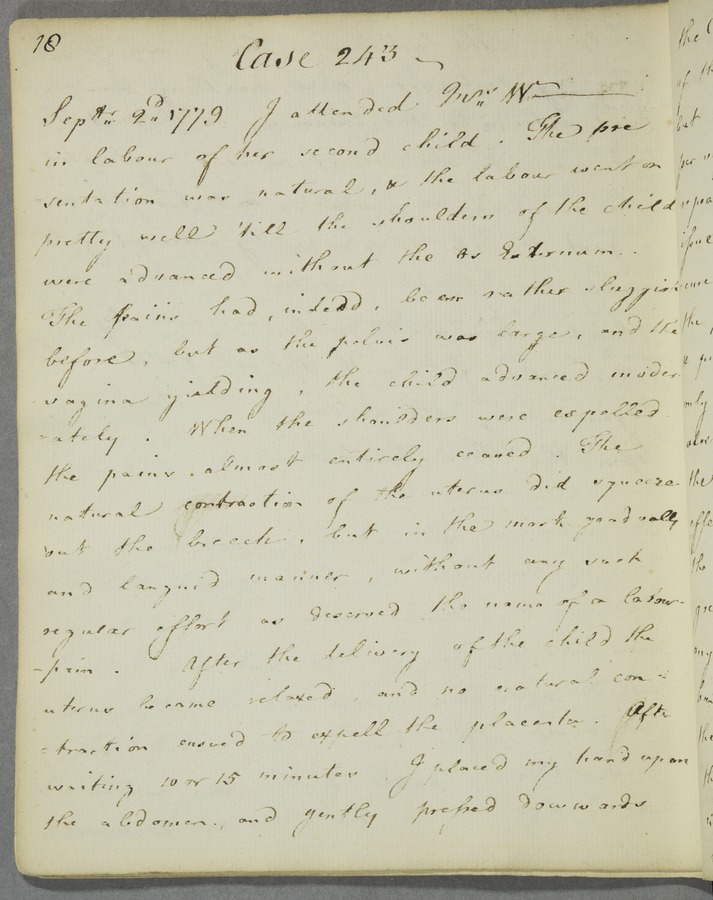 18
Case 243
Septr. 2d. 1779 I attended Mrs. W
in labour of her second child. The pre
sentation was natural, & the labour went on
pretty well 'till the shoulders of the child
were advanced without the Os Externum.
The pains had, indedd, been rather sluggish
before, but as the pelvis was large, and the
vagina yielding, the child advanced moder
-ately. When the shoulders were expelled
the pains almost entirely ceased. The
natural contraction of the uterus did squeeze
out the breech, but in the most gradually
and languid manner, without any such
regular effort as deserved the name of a labour
-pain. After the delivery of the child the
uterus became relaxed, and no natural con=
=traction ensued to expell the placenta. After
waiting 10 or 15 minutes I placed my hand upon
the abdomen, and gently pressed downwards